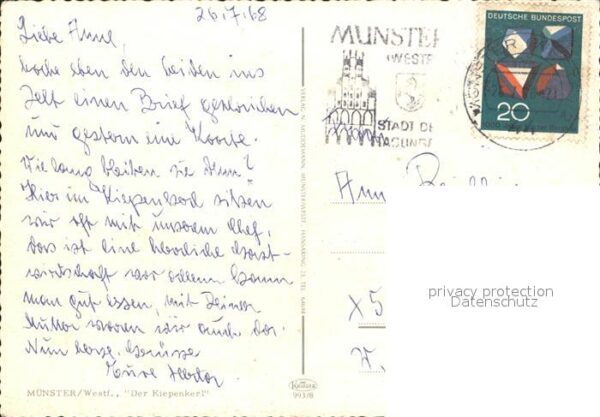 26.7.68
Liebe Anne,
habe eben den beiden ins
Zelt einen Brief geschrieben
und gestern eine Karte.
Wie lang bleiben sie denn?
Hier im Kiepenkerl sitzen
wir oft mit unserem Chef,
das ist eine herrliche Gast-
wirtschaft vor allem kann
man gut essen, mit Deiner
Mutter waren wir auch da.
Nun herzl. Grüsse
Eure
MÜNSTER/Westf., "Der Kiepenkerl"
993/8
MÜNSTER
(WESTF
STADT DE
DEUTSCHE BUNDESPOST
20
Anne
X5
privacy protection
Datenschutz